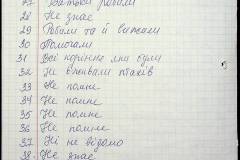 27 Батьки робили
28 Не знає
29 Робили та й
30 Помагали
31 Всі корінне які були
32 Не вживали
33 Не помне
34 Не помне
35 Не помне
36 Не помне
37 Ні не відомо
38 Не знає